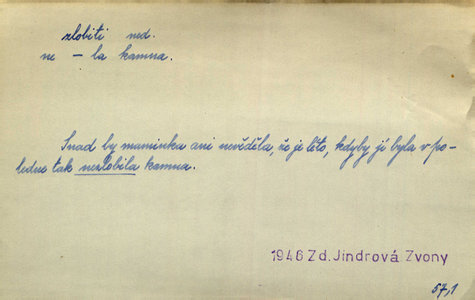 zlobiti ned.
ne – la kamna.
Snad by maminka ani nevěděla, že je léto, kdyby jí byla v po-
ledne tak nezlobila kamna.
1946 Zd. Jindrová Zvony
57,1